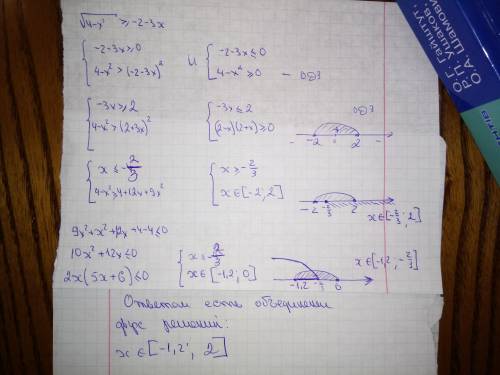 √4-x² ≥ -2-3x
{ -2-3x ≥ 0
4-x² > (-2-3x)²
и
{ -2-3x ≤ 0
4-x² ≥ 0 - ОДЗ
{ -3x ≥ 2
4-x² > (2+3x)²
{ -3x ≤ 2
(2-x)(2+x) ≥ 0
ОДЗ
- -2 + 2 -
{ x ≤ -2/3
4-x² ≥ 4+12x+9x²
{ x ≥ -2/3
x ∈ [-2; 2]
-2 -2/3 2
x ∈ [-2/3; 2]
9x²+x²+12x+4-4 ≤ 0
10x²+12x ≤ 0
2x(5x+6) ≤ 0
{ x ≤ -2/3
x ∈ [-1,2; 0]
-1,2 0
x ∈ [-1,2; -2/3]
Ответом есть объединении
двух решений:
x ∈ [-1,2; 2]
Гайштут,
Р.П. Ушаков,
О.А. Шамович